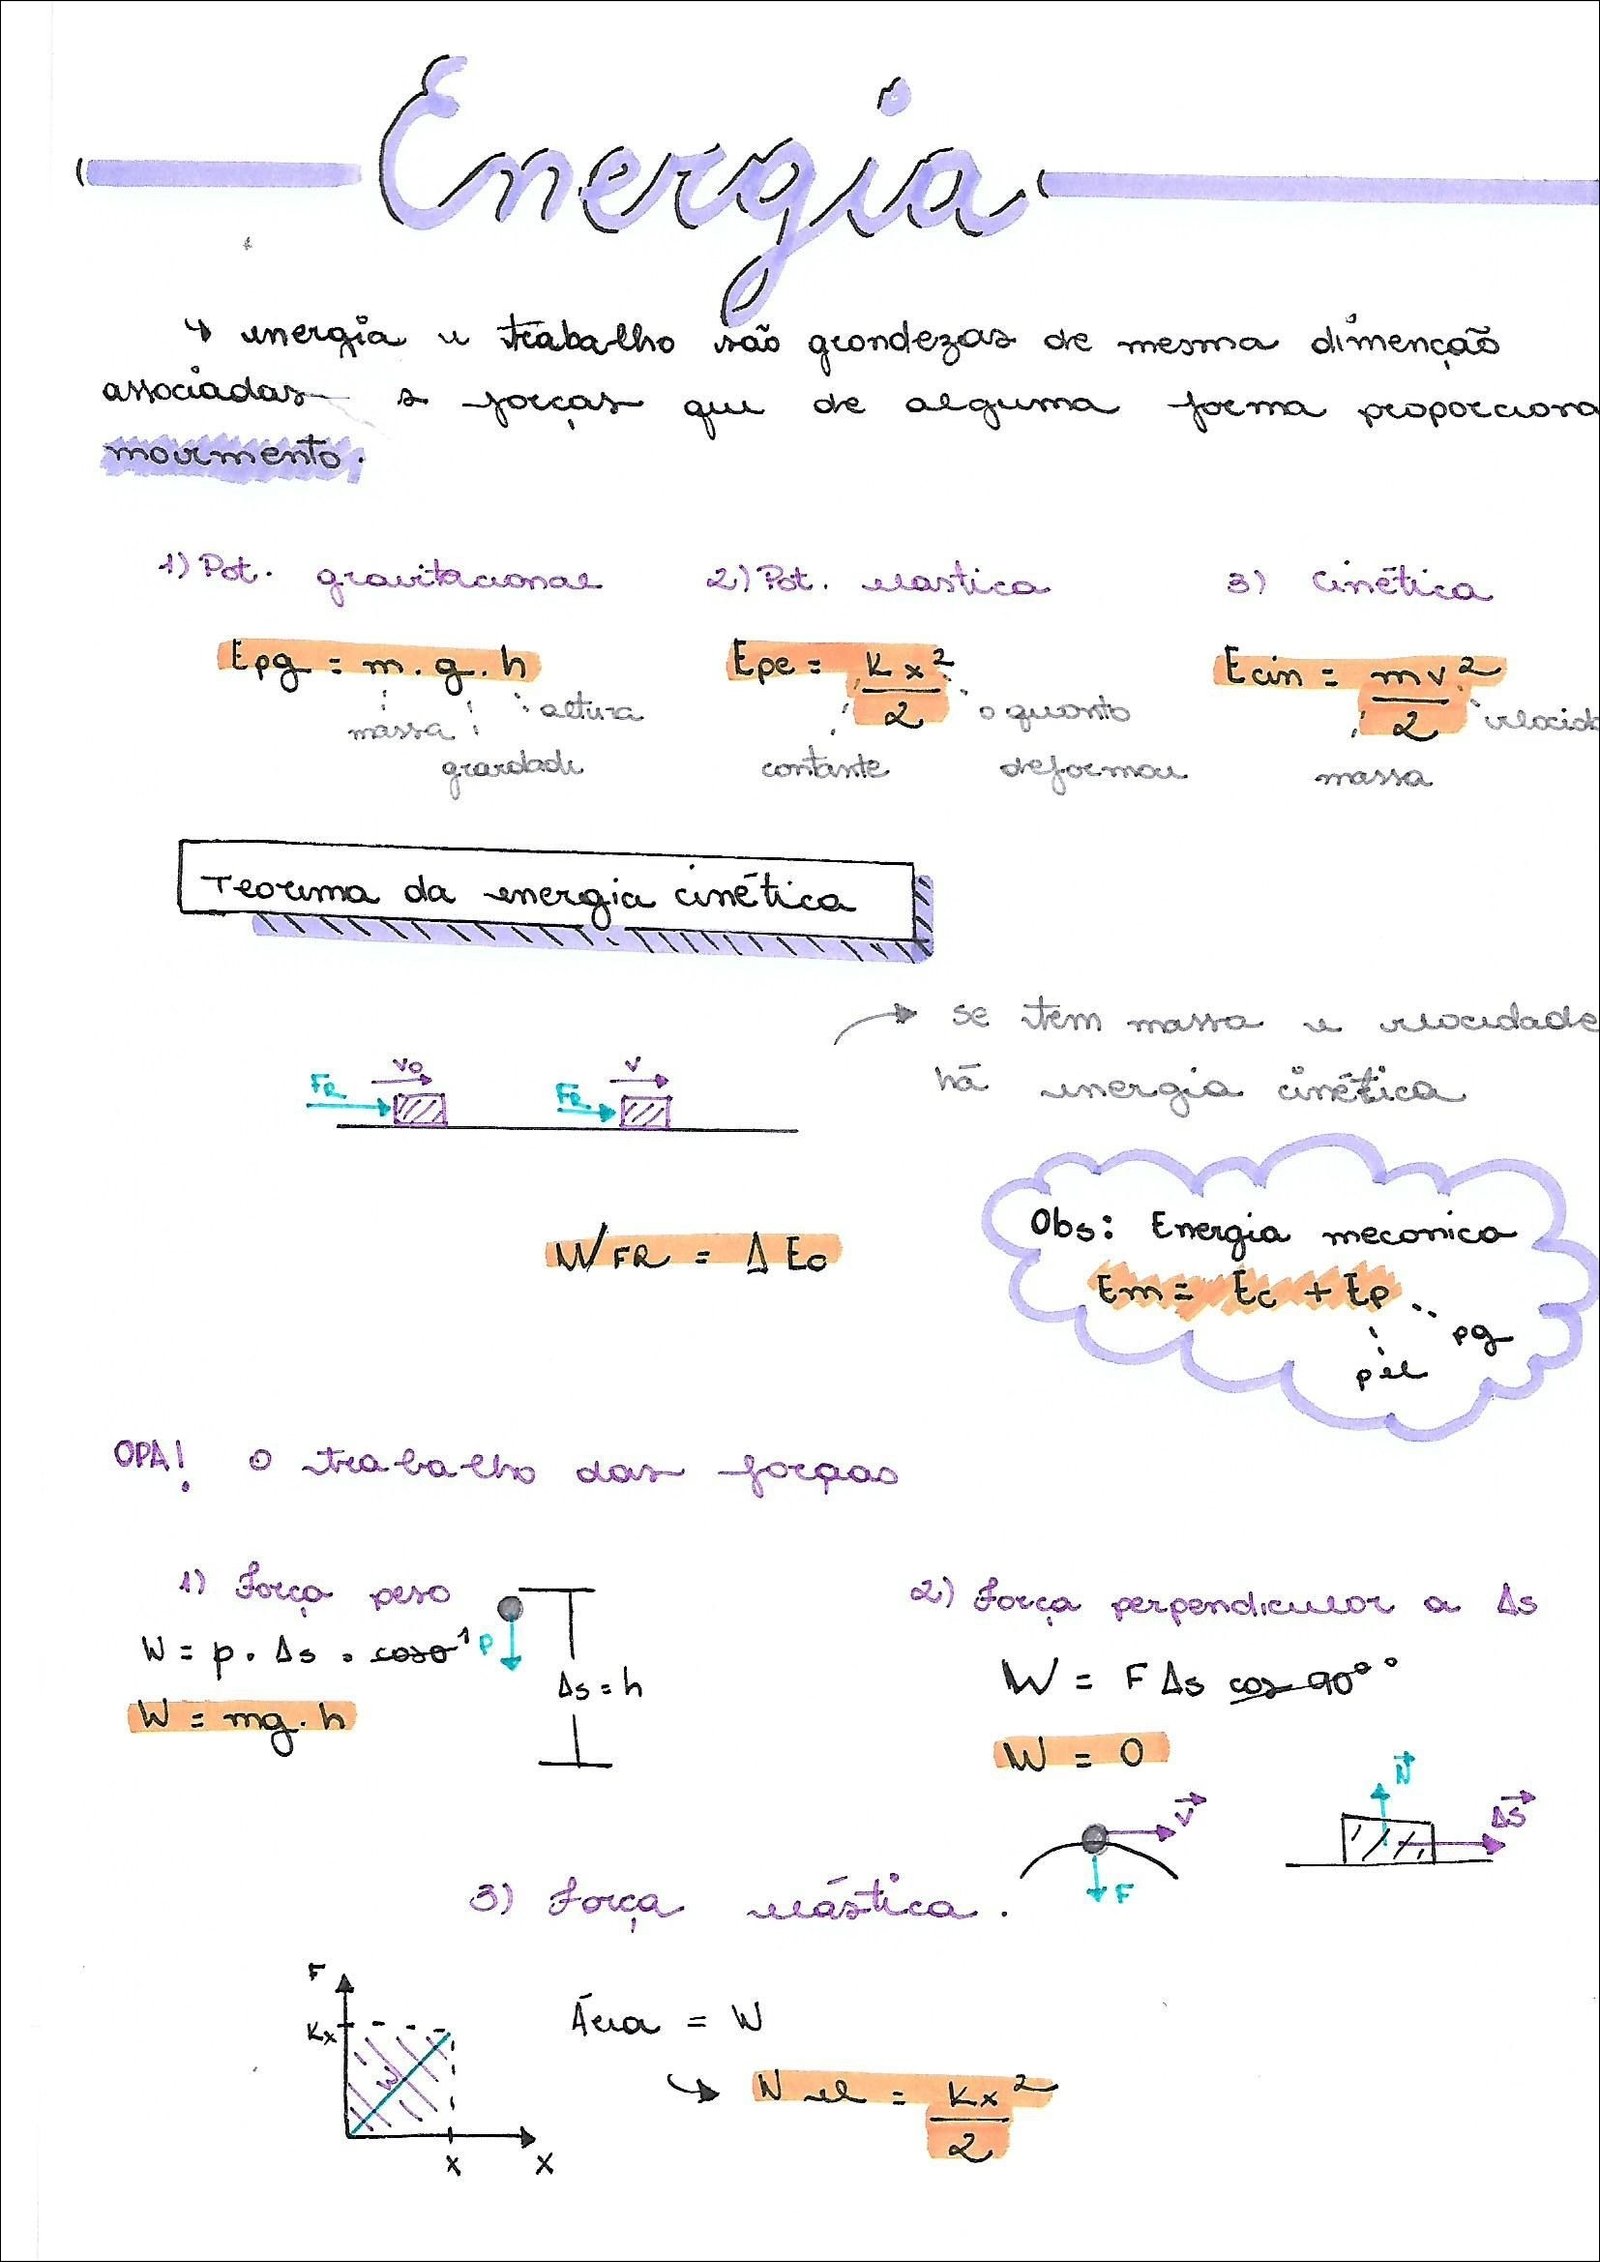 Energia
↳ energia e trabalho são grandezas de mesma dimenção
associadas a forças que de alguma forma proporciona
movimento.
1) Pot. gravitacional 2) Pot. elastica 3) cinética
Epg = m . g . h
massa
gravidade
altura
Epe = Kx²/2
contante
o quanto
deformou
Ecin = mv²/2
massa
velocid
Teorema da energia cinética
se tem massa e velocidade
há energia cinética
FR V0 FR V
WFR = Δ Ec
Obs: Energia mecanica
Em = Ec + Ep
pg
pel
OPA! O trabalho das forças
1) Força peso
W = p . Δs . cos0 1
W = mg . h
P
Δs = h
2) Força perpendicular a Δs
W = F Δs cos 90° °
W = 0
V
F
N
ΔS
3) Força elástica.
F
Kx
W
x
X
Área = W
↳ Wel = Kx²/2